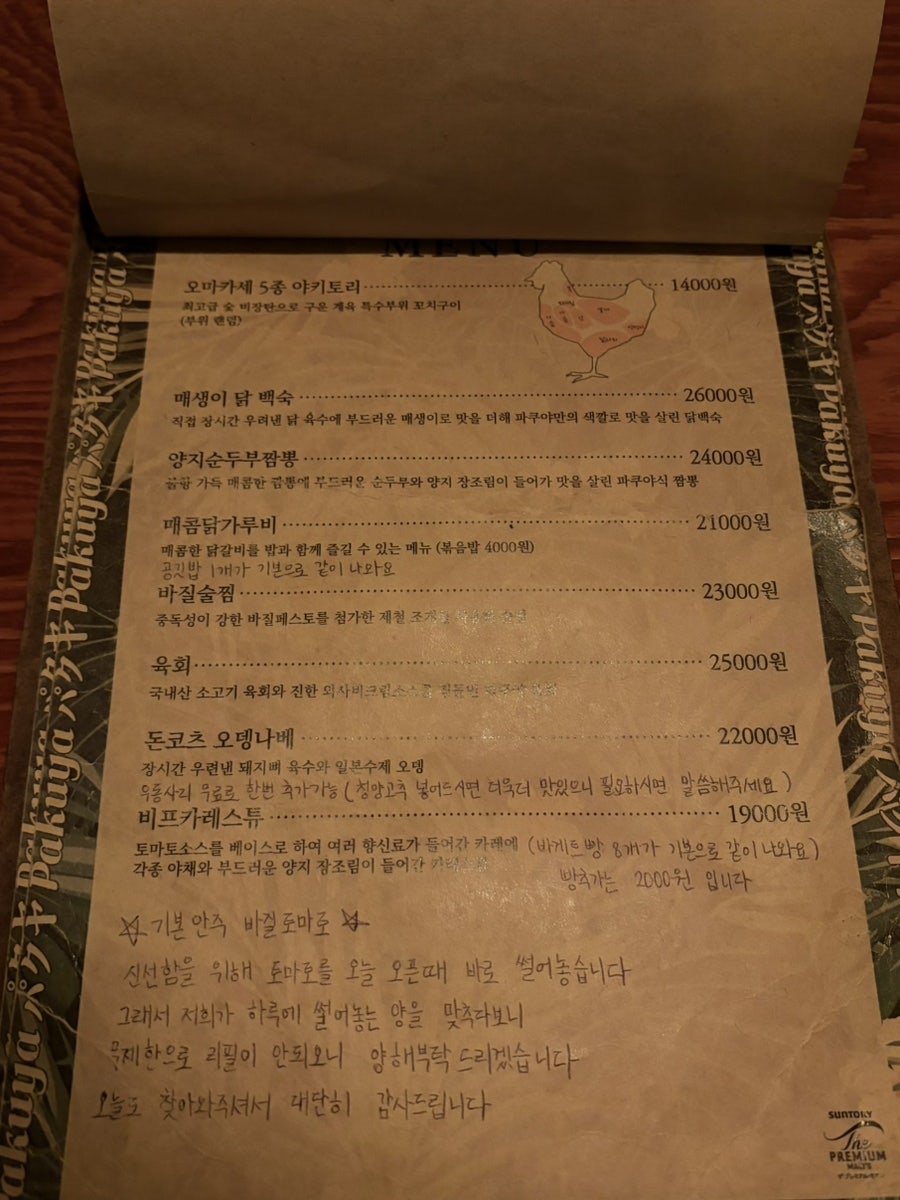 MENU
오마카세 5종 야키토리 14000원
최고급 숯 비장탄으로 구운 계육 특수부위 꼬치구이
(부위 랜덤)
매생이 닭 백숙 26000원
직접 장시간 우려낸 닭 육수에 부드러운 매생이로 맛을 더해 파쿠야만의 색깔로 맛을 살린 닭백숙
양지순두부짬뽕 24000원
불향 가득 매콤한 짬뽕에 부드러운 순두부와 양지 장조림이 들어가 맛을 살린 파쿠야식 짬뽕
매콤닭가루비 21000원
매콤한 닭갈비를 밥과 함께 즐길 수 있는 메뉴 (볶음밥 4000원)
공깃밥 1개가 기본으로 같이 나와요
바질술찜 23000원
중독성이 강한 바질페스토를 첨가한 제철
육회 25000원
국내산 소고기 육회와 진한
돈코츠 오뎅나베 22000원
장시간 우련낸 돼지뼈 육수와 일본수제 오뎅
우동사리 무료로 한번 추가가능 (청양고추 넣어드시면 더욱더 맛있으니 필요하시면 말씀해주세요)
비프카레스튜 19000원
토마토소스를 베이스로 하여 여러 향신료가 들어간 카레에 (바게트빵 8개가 기본으로 같이 나와요)
각종 야채와 부드러운 양지 장조림이 들어간
빵추가는 2000원 입니다
☆ 기본안주 바질토마토 ☆
신선함을 위해 토마토를 오늘 오픈때 바로 썰어놓습니다
그래서 저희가 하루에 썰어놓는 양을 맞추다보니
무제한으로 리필이 안되오니 양해부탁드리겠습니다
오늘도 찾아와주셔서 대단히 감사드립니다
Pakuya パクキ Pakuya パクキ Pakuya
Pakuya パクキ Pakuya
SUNTORY
The
PREMIUM
MALT'S
ザ・プレミアム・モルツ